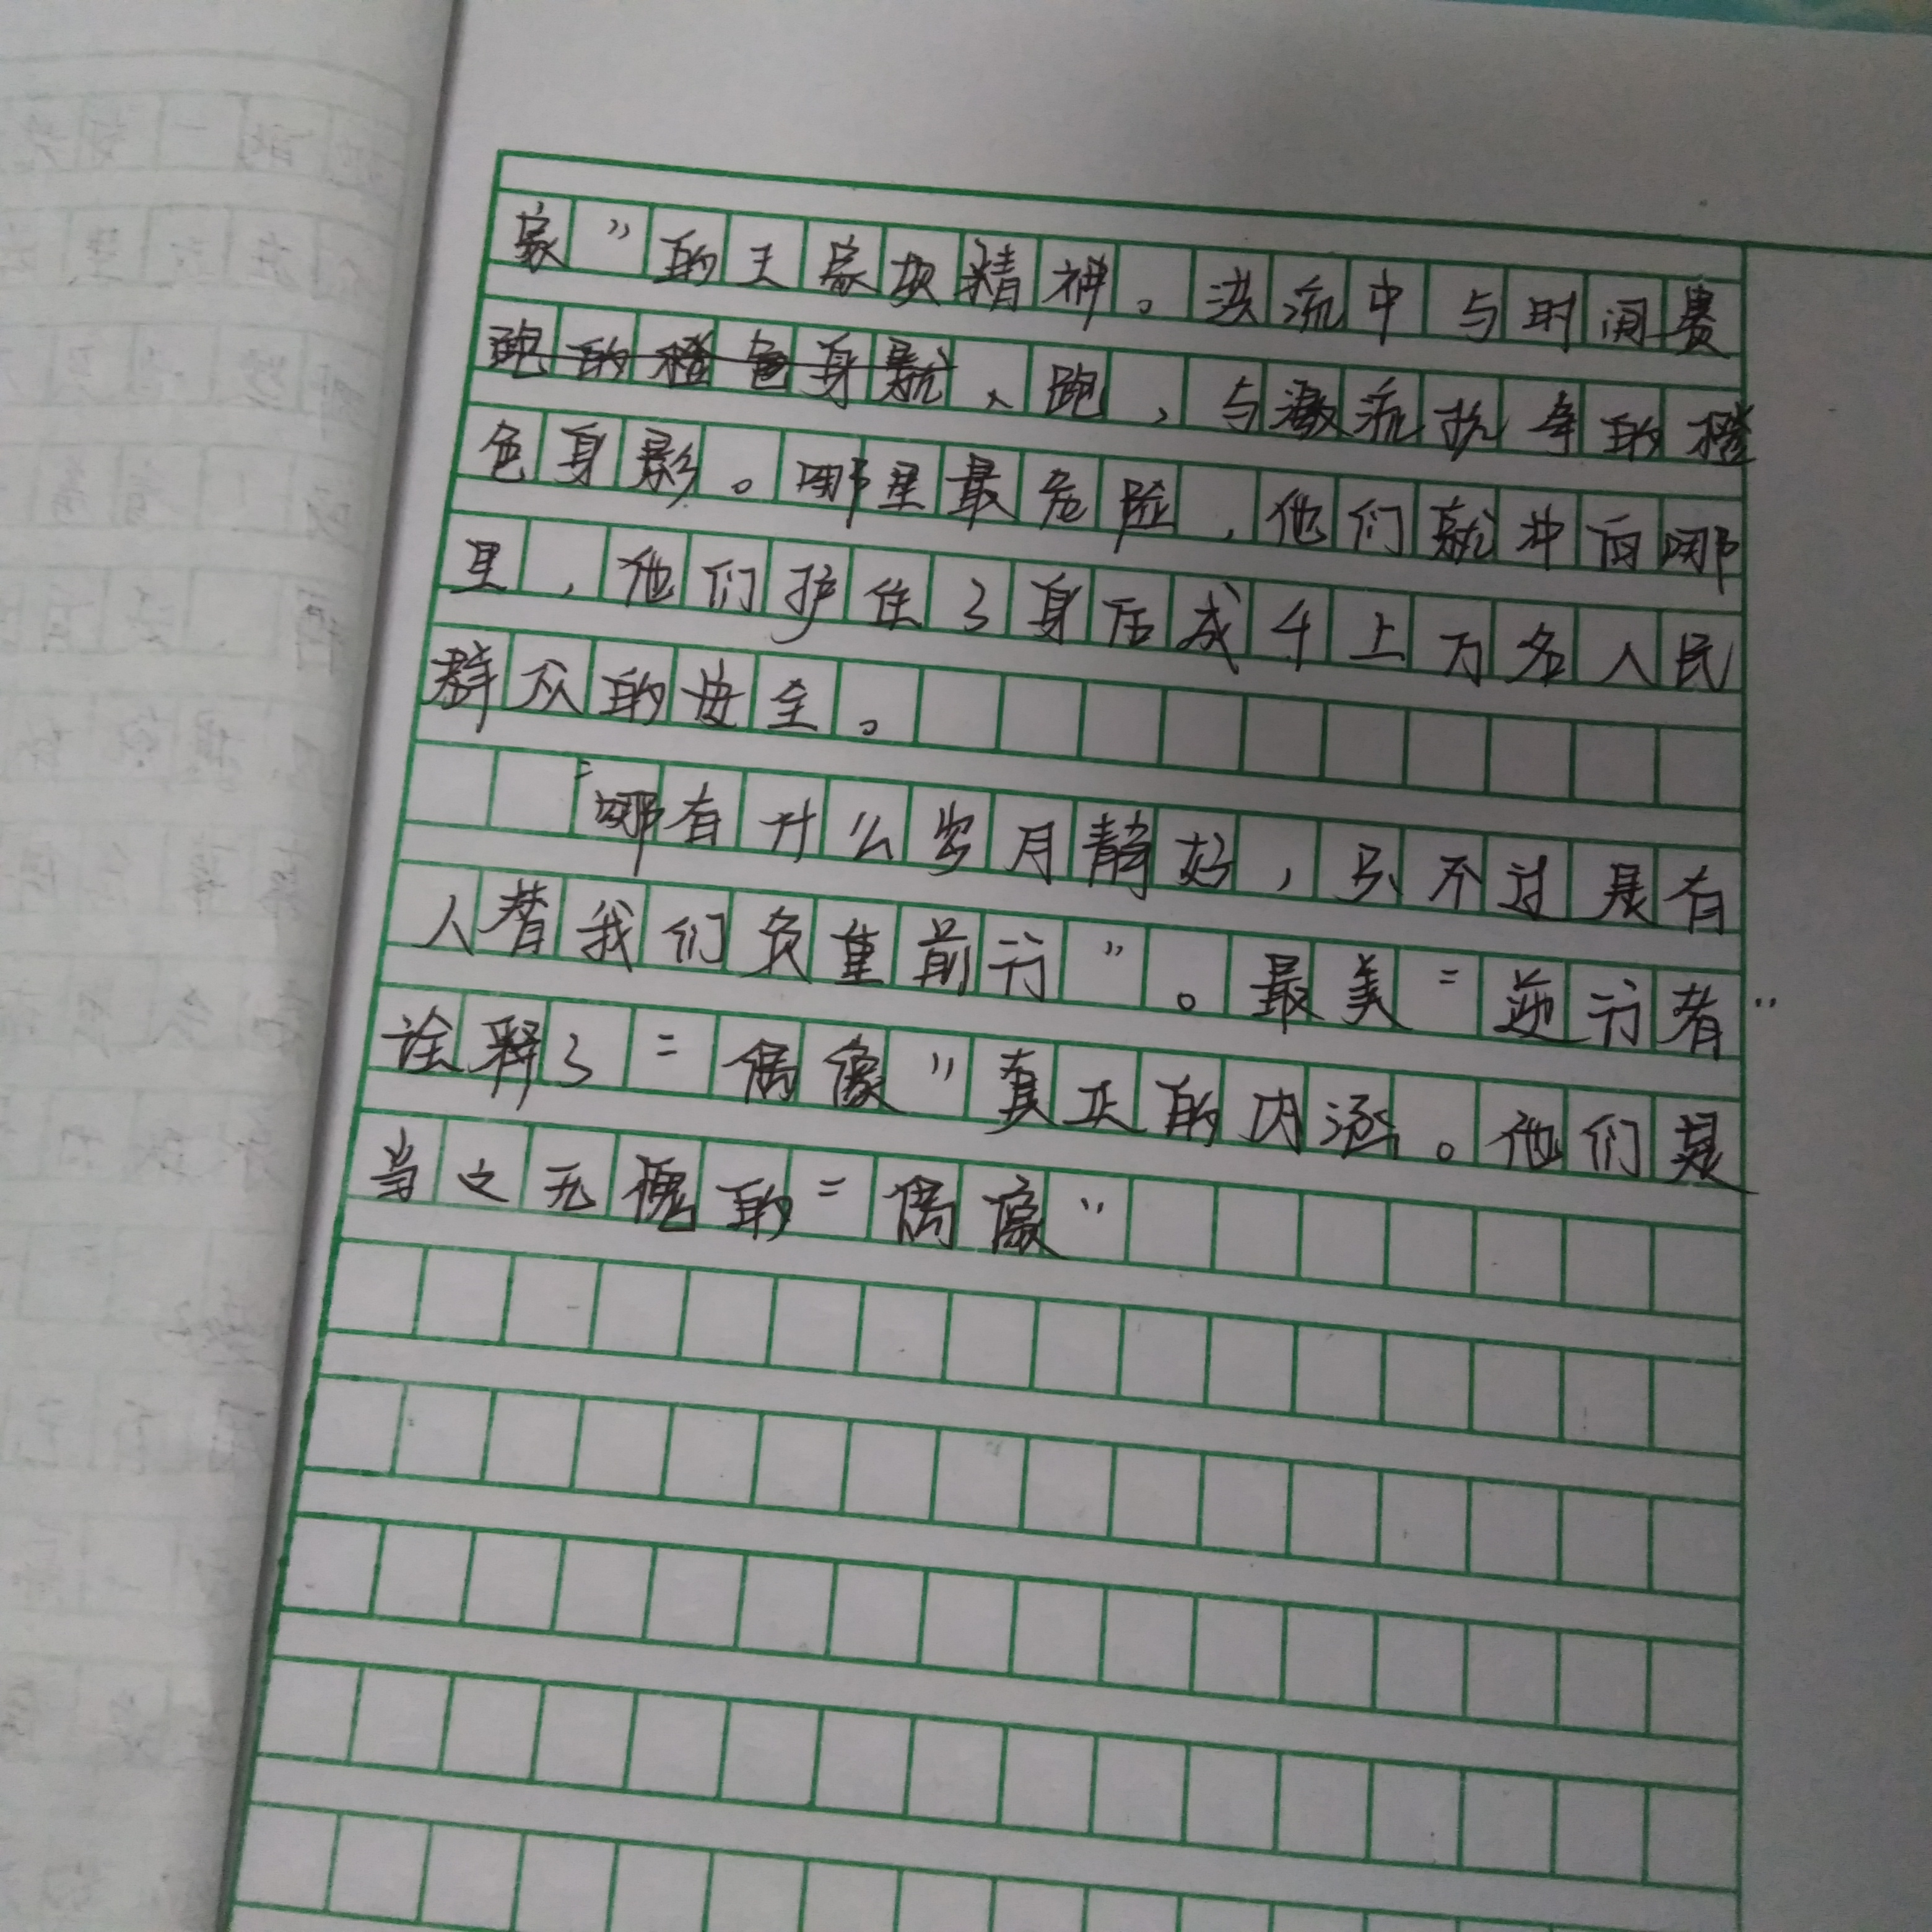 家”的王家坝精神。洪流中与时间赛
跑的橙色身就、跑，与激流抗争的橙
色身影。哪里最危险，他们就冲向哪
里，他们护住了身后成千上万名人民
群众的安全。
“哪有什么岁月静好，只不过是有
人替我们负重前行”。最美“逆行者”
诠释了“偶像”真正的内涵。他们是
当之无愧的“偶像”